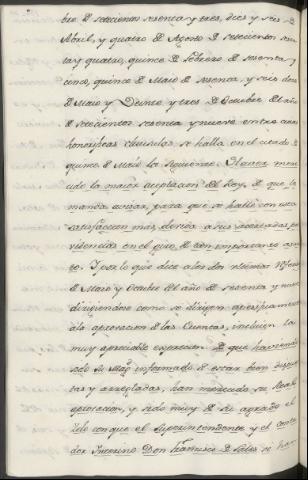 bre de setecientos sesenta y tres, diez y seis de
Abril, y quatro de Agosto de setecientos sesen
ta y quatro, quince de Febrero de sesenta y
cinco, quince de Maio de sesenta, y seis doce
de Maio y Veinte y tres de Octubre del año
de setecientos sesenta y nueve entre cuias
honorificas clausulas se halla en el citado de
quince de Maio la siguiente. Haver mere
cido la maior aceptacion del Rey, de que le
manda avisar, para que se halle con esta
satisfaccion mas devida a sus acertadas pro
videncias en el giro de tan importante asun
to. Y por lo que dice a los dos ultimos
de Maio y Octubre del año de sesenta y nueve
dirigiendose como se dirigen
a la aprovacion de las Cuentas, incluien la
muy apreciable expresion de que haviendo
sido Su Magd informado de estar bien dispues
tas y arregladas, han merecido su Real
aprovacion, y sido muy de su agrado el
zelo con que el Superintendente y el Conta
dor Interino Don Francisco de Sales